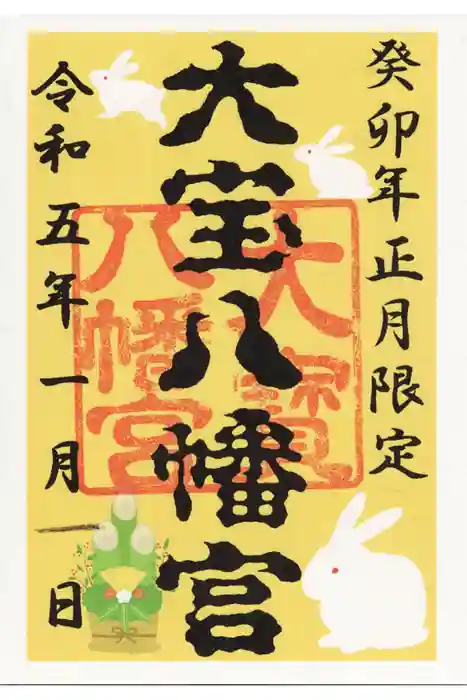 癸卯年正月限定
大宝八幡宮
大寳八幡宮
令和五年一月一日